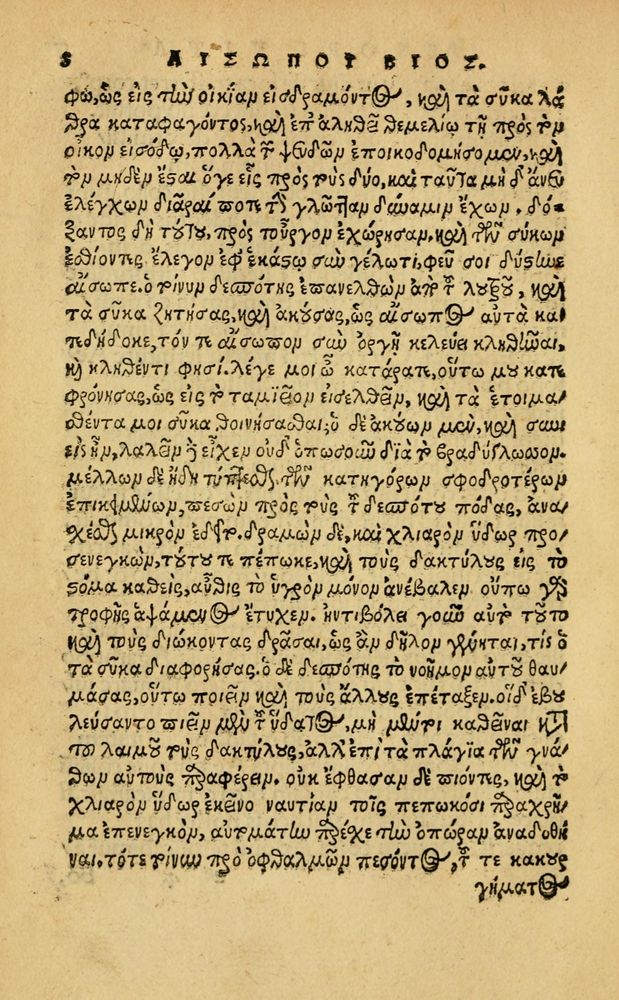 8 ΑΙΣΩΠΟΥ ΒΙΟΣ.
φῳ, ὡς εἰς τὴν οἰκίαν εἰσδραμόντος, καὶ τὰ σῦκα λά-
θρα καταφαγόντος, καὶ ἐπ' ἀληθεῖ θεμελίῳ τῇ πρὸς τὸν
οἶκον εἰσόδῳ, πολλὰ τῶν ψευδῶν ἐποικοδομήσομεν, καὶ
τὸν μηδὲν ἔσαι ὅγε εἷς πρὸς τοὺς δύο, καὶ ταῦτα μηδ' ἄνευ
ἐλέγχων διᾶραί ποτε τὴν γλῶτταν δύναμιν ἔχων. δό-
ξαντος δὴ τούτου, πρὸς τοὖργον ἐχώρησαν, καὶ τῶν σύκων
ἐσθίοντες ἔλεγον ἐφ' ἑκάστῳ σὺν γέλωτι, φεῦ σοι δύστηνε
αἴσωπε. ὁ τοίνυν δεσπότης ἐπανελθὼν ἀπὸ τοῦ λουτροῦ, καὶ
τὰ σῦκα ζητήσας, καὶ ἀκούσας, ὡς αἴσωπος αὐτὰ κα-
τεδήδοκε, τόν τε αἴσωπον σὺν ὀργῇ κελεύει κληθῆναι,
καὶ κληθέντι φησί. λέγε μοι ὦ κατάρατε, οὕτω μου κατε-
φρόνησας, ὡς εἰς τὸ ταμιεῖον εἰσελθεῖν, καὶ τὰ ἑτοιμα-
σθέντα μοι σῦκα θοινήσασθαι; ὁ δὲ ἀκούων μὲν, καὶ συνι-
εὶς ἦν, λαλεῖν δὲ εἶχεν οὐδ' ὁπωσοῦν διὰ τὸ βραδύγλωσσον.
μέλλων δὲ ἤδη τύπτεσθαι, τῶν κατηγόρων σφοδροτέρων
ἐπικειμένων, πεσὼν πρὸς τοὺς τοῦ δεσπότου πόδας, ἀνα-
σχέσθαι μικρὸν ἐδεῖτο. δραμὼν δὲ, καὶ χλιαρὸν ὕδωρ προ-
σενεγκὼν, τοῦτό τε πέπωκε, καὶ τοὺς δακτύλους εἰς τὸ
στόμα καθεὶς, αὖθις τὸ ὑγρὸν μόνον ἀνέβαλεν οὔπω γὰρ
τροφῆς ἁψάμενος ἔτυχεν. ἠντιβόλει γοῦν αὐτὸ τοῦτο
καὶ τοὺς διώκοντας δρᾶσαι, ὡς ἂν δῆλον γένηται, τίς ὁ
τὰ σῦκα διαφορήσας. ὁ δὲ δεσπότης τὸ νοῆμον αὐτοῦ θαυ-
μάσας, οὕτω ποιεῖν καὶ τοὺς ἄλλους ἐπέταξεν. οἱ δ' ἐβου
λεύσαντο πιεῖν μὲν τοῦ ὕδατος, μὴ μέντοι καθεῖναι κατὰ
τοῦ λαιμοῦ τοὺς δακτύλους, ἀλλ' ἐπὶ τὰ πλάγια τῶν γνά-
θων αὐτοὺς περιφέρειν. οὐκ ἔφθασαν δὲ πιόντες, καὶ τὸ
χλιαρὸν ὕδωρ ἐκεῖνο ναυτίαν τοῖς πεπωκόσι παραχρῆ-
μα ἐπενεγκὸν, αὐτομάτην παρέσχε τὴν ὀπώραν ἀναδοθῆ
ναι, τότε τοίνυν πρὸ ὀφθαλμῶν πεσόντος, τοῦ τε κακουρ
γήματος